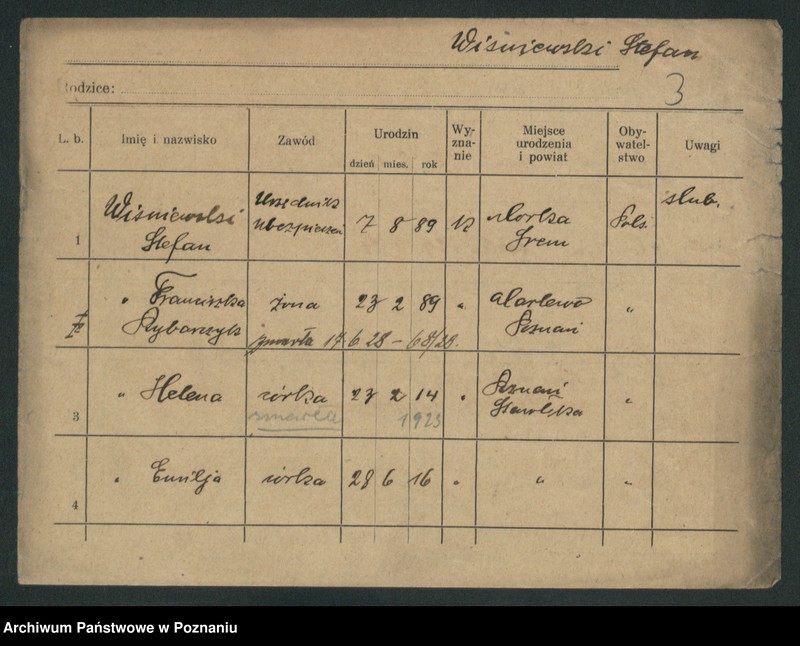 Wiśniewski Stefan
3
odzice:
L. b. Imię i nazwisko Zawód Urodzin dzień mies. rok Wyznanie Miejsce urodzenia i powiat Obywatelstwo Uwagi
1 Wiśniewski Stefan Urzędnik ubezpieczeń 7 8 89 Śrem Pols. ślub.
" Franciszka Rybarczyk żona 23 2 89 " Poznań "
zmarła 17 6 28 – 68/28.
3 " Helena córka 23 2 14 " Poznań "
zmarła 1923
4 " Emilja córka 28 6 16 " " "
Archiwum Państwowe w Poznaniu